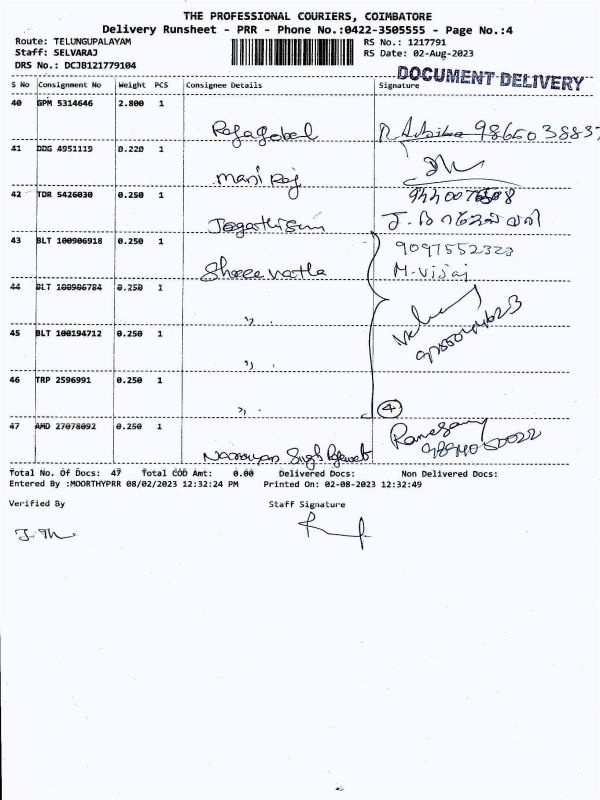 THE PROFESSIONAL COURIERS, COIMBATORE
Delivery Runsheet - PRR - Phone No.:0422-3505555 - Page No.:4
Route: TELUNGUPALAYAM RS No.: 1217791
Staff: SELVARAJ RS Date: 02-Aug-2023
DRS No.: DCJB121779104
DOCUMENT DELIVERY
S No Consignment No Weight PCS Consignee Details Signature
40 GPM 5314646 2.800 1
Rajagobal 98650 38837
41 DDG 4951119 0.220 1
Mani Raj
42 TDR 5426030 0.250 1
Jegathisun
43 BLT 100906918 0.250 1 9097552323
Shreee vatla M. Vijaj
44 BLT 100906784 0.250 1
" .
45 BLT 100194712 0.250 1
" .
46 TRP 2596991 0.250 1
" . 4
47 AMD 27078092 0.250 1
Narayan Singh
Total No. Of Docs: 47 Total COD Amt: 0.00 Delivered Docs: Non Delivered Docs:
Entered By :MOORTHYPRR 08/02/2023 12:32:24 PM Printed On: 02-08-2023 12:32:49
Verified By Staff Signature